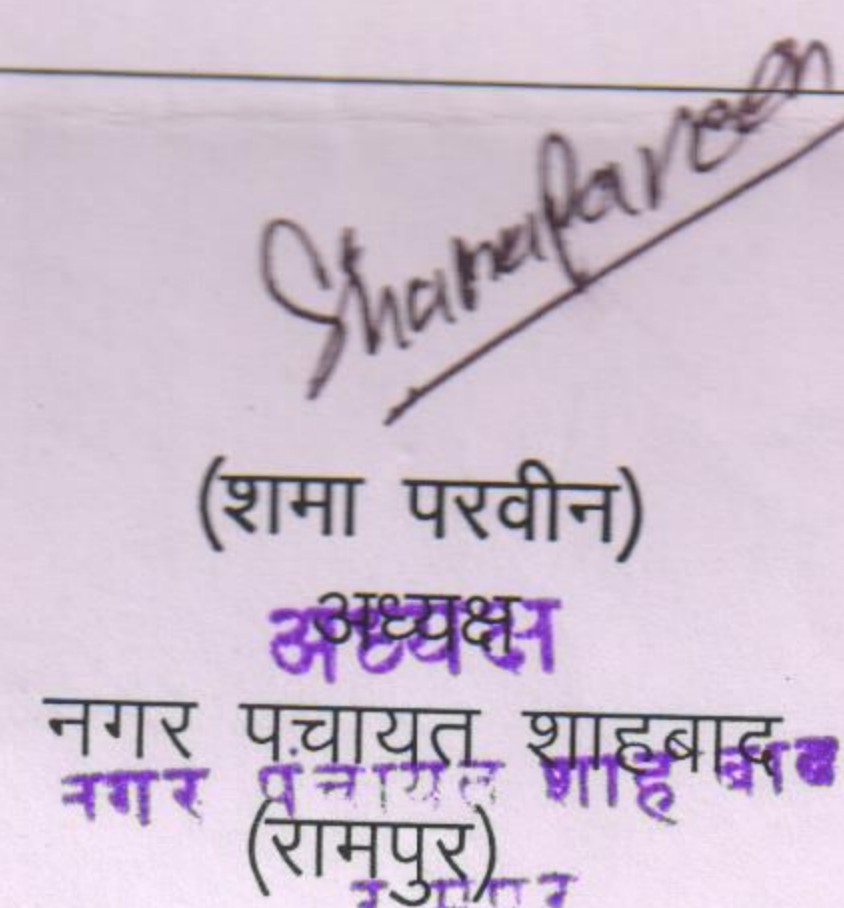 Shama Parveen
(शमा परवीन)
अध्यक्ष
अध्यक्ष
नगर पंचायत शाहबाद
नगर पंचायत शाहबाद
(रामपुर)